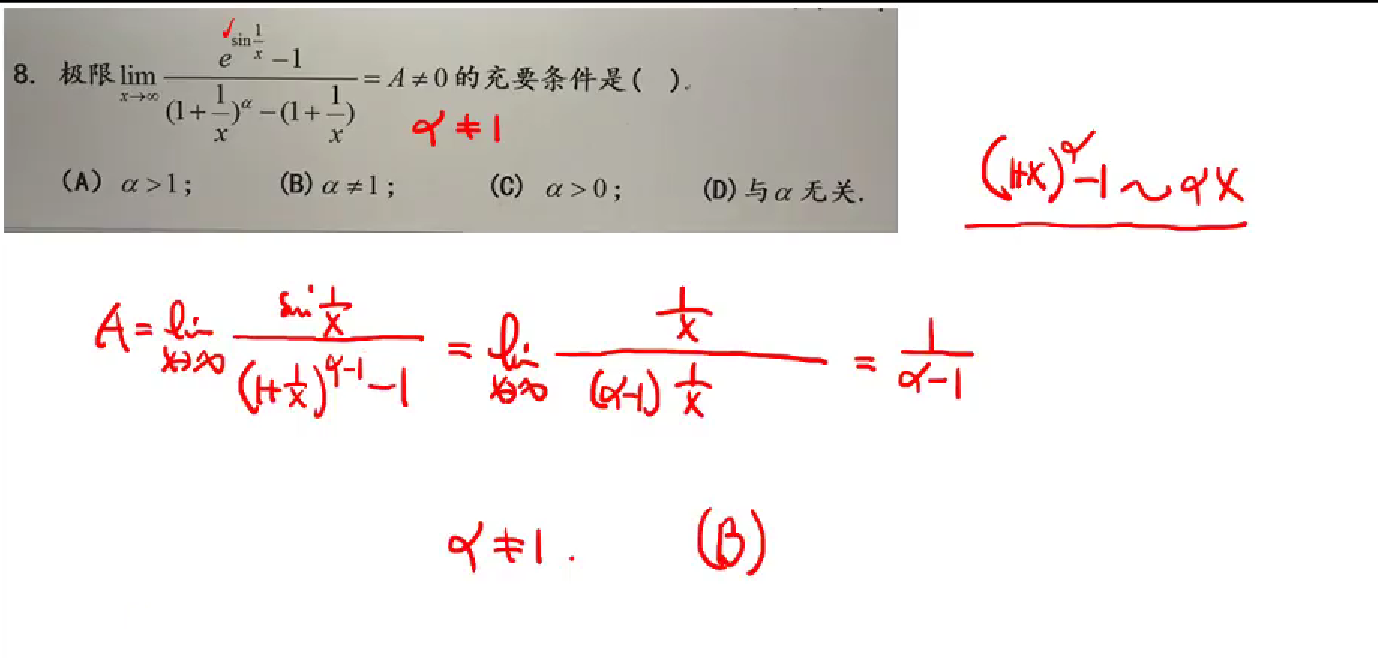 8. 极限 lim_{x→∞} (e^{sin 1/x} − 1) / ((1+1/x)^α − (1+1/x)) = A ≠ 0 的充要条件是( ).
α ≠ 1
(A) α > 1; (B) α ≠ 1; (C) α > 0; (D) 与 α 无关.
(1+x)^α − 1 ~ αx
A = lim_{x→∞} (sin 1/x) / ((1+1/x)^{α−1} − 1) = lim_{x→∞} (1/x) / ((α−1) 1/x) = 1/(α−1)
α ≠ 1. (B)